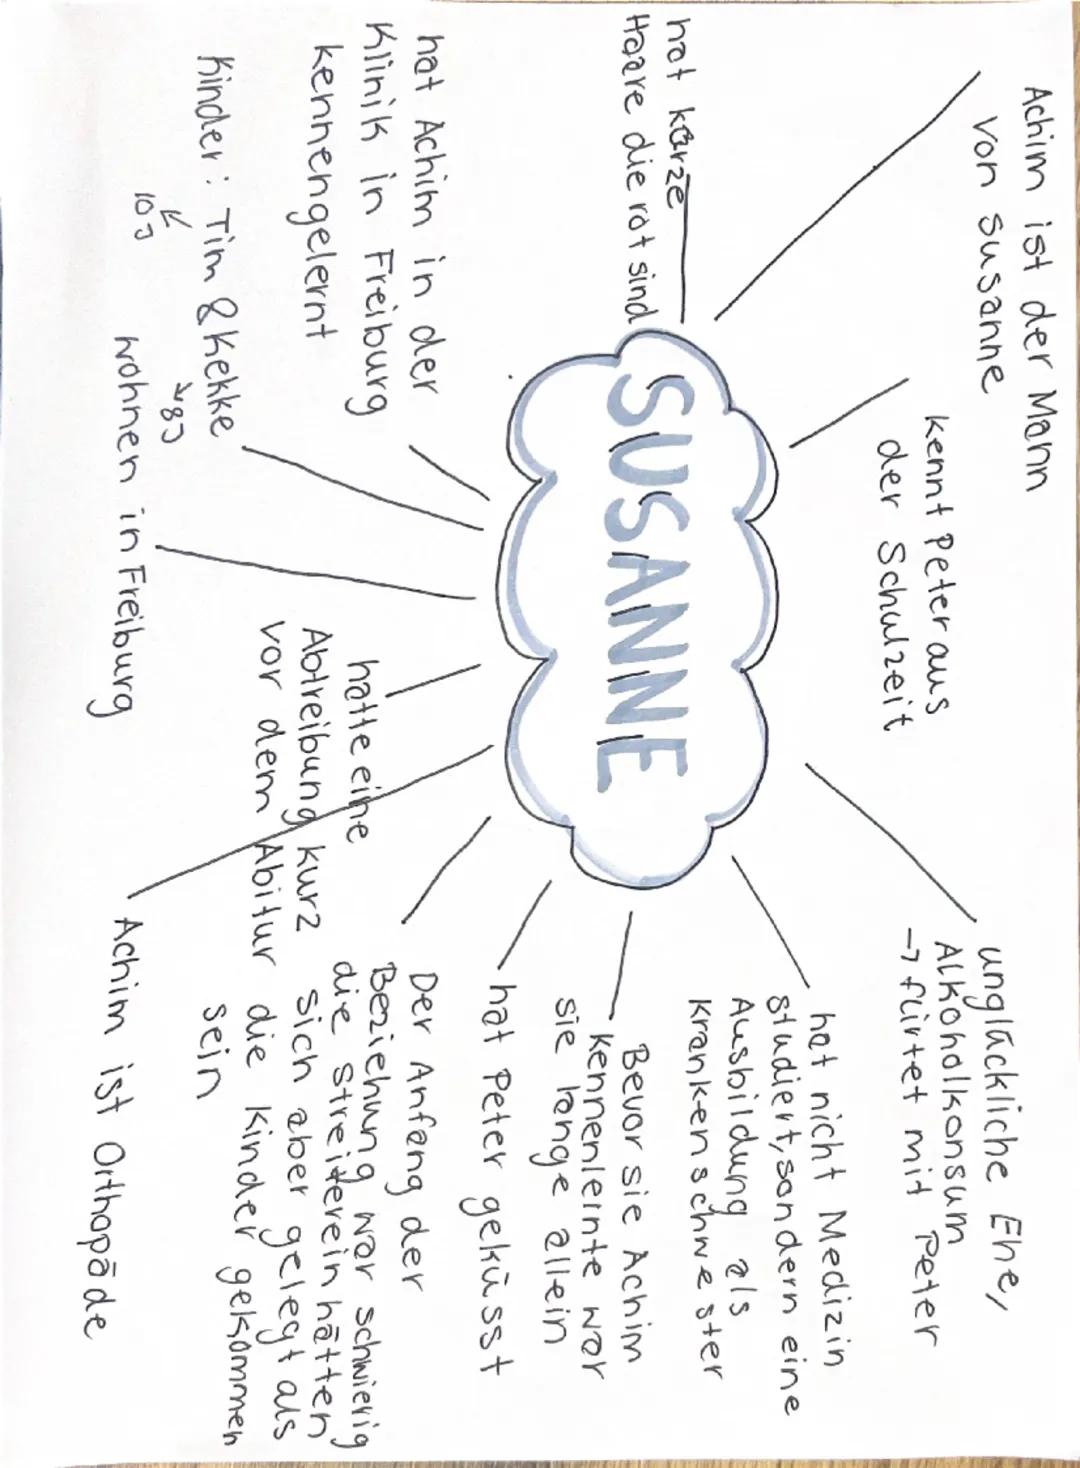 Achim ist der Mann
von Susanne
kennt Peter aus
der Schulzeit
unglückliche Ehe,
Alkoholkonsum
→ flirtet mit Peter
hat kürze
Haare die rot sind
SUSANNE
hat nicht Medizin
studiert, sondern eine
Ausbildung als
Krankenschwester
Bevor sie Achim
kennenlernte war
sie lange allein
hat Peter geküsst
hat Achim in der
Klinik in Freiburg
kennengelernt
Kinder: Tim & Kekke
10J
8J
wohnen in Freiburg
hatte eine
Abtreibung kurz
vor dem Abitur
Der Anfang der
Beziehung war schwierig
die Streiterein hätten
sich aber gelegt als
die Kinder gekommen
sein
Achim ist Orthopäde